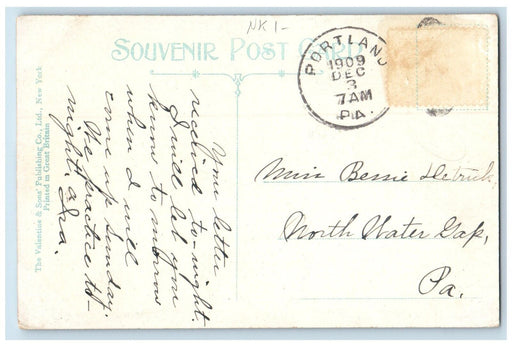 NK 1-
SOUVENIR POST CARD
PORTLAND
1909
DEC
3
7AM
PA.
Your letter
received to-night.
I will let you
know to-morrow
when I will
come up Sunday.
We practice to-
night. Ira.
Miss Bessie Detrick,
North Water Gap,
Pa.
The Valentine & Sons' Publishing Co., Ltd., New York
Printed in Great Britain